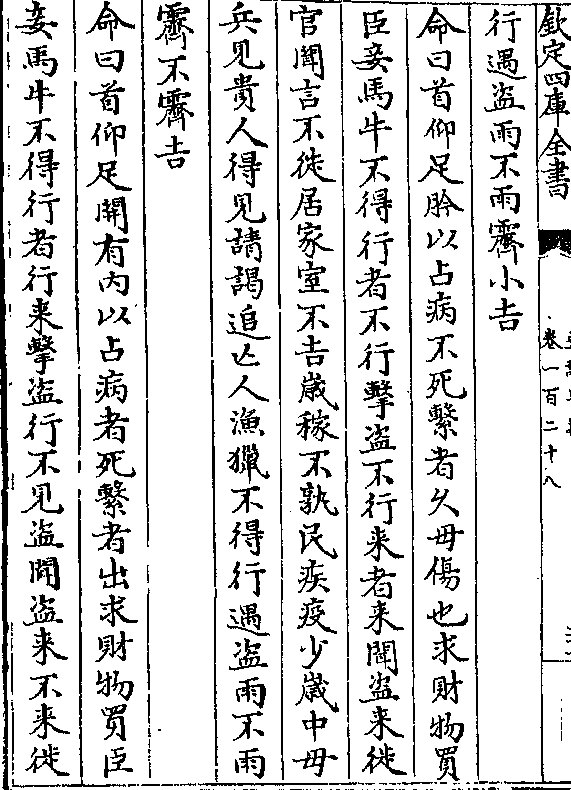 欽定四庫全書
卷一百二十八
行遇盜雨不雨霽小吉
命曰首仰足肣以占病不死繫者久毋傷也求財物買
臣妾馬牛不得行者不行擊盜不行来者来聞盜来徙
官聞言不徙居家室不吉歲稼不孰民疾疫少歲中毋
兵見貴人得見請謁追亡人漁獵不得行遇盜雨不雨
霽不霽吉
命曰首仰足開有內以占病者死繫者出求財物買臣
妾馬牛不得行者行来擊盜行不見盜聞盜来不来徙